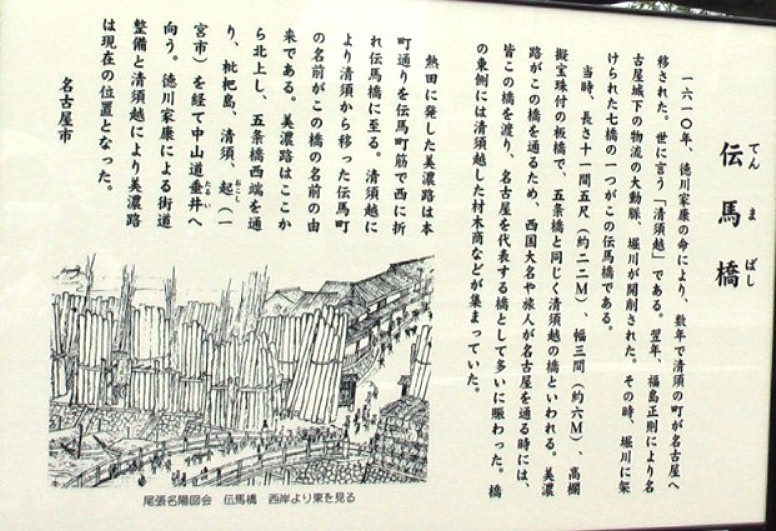 伝馬橋
てんまばし
一六一〇年、徳川家康の命により、数年で清須の町が名古屋へ
移された。世に言う「清須越」である。翌年、福島正則により名
古屋城下の物流の大動脈、堀川が開削された。その時、堀川に架
けられた七橋の一つがこの伝馬橋である。
当時、長さ十一間五尺（約二二M）、幅三間（約六M）、高欄
擬宝珠付の板橋で、五条橋と同じく清須越の橋といわれる。美濃
路がこの橋を通るため、西国大名や旅人が名古屋を通る時には、
皆この橋を渡り、名古屋を代表する橋として多いに賑わった。橋
の東側には清須越した材木商などが集まっていた。
熱田に発した美濃路は本
町通りを伝馬町筋で西に折
れ伝馬橋に至る。清須越に
より清須から移った伝馬町
の名前がこの橋の名前の由
来である。美濃路はここか
ら北上し、五条橋西端を通
り、枇杷島、清須、起（一
おこし
宮市）を経て中山道垂井へ
たるい
向う。徳川家康による街道
整備と清須越により美濃路
は現在の位置となった。
名古屋市
尾張名陽図会　伝馬橋　西岸より東を見る